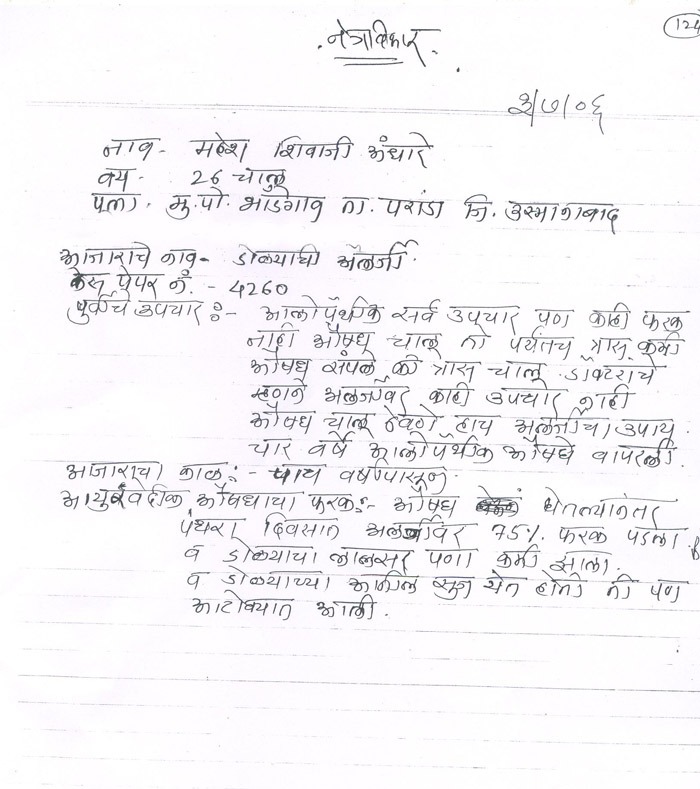 124
नेत्रविकार
३/७/०६
नाव - महेश शिवाजी अंधारे
वय - 26 चालु
पत्ता. मु.पो. भांडेगाव ता. परांडा जि. उस्मानाबाद
आजाराचे नाव - डोळ्याची अ‍ॅलर्जी.
केस पेपर नं. - 4260
पुर्वीचे उपचार :- आलोपॅथीक सर्व उपचार पण काही फरक
नाही औषध चालू तो पर्यंतच त्रास कमी
औषध संपले की त्रास चालू डॉक्टराचे
म्हणने अलर्जीवर काही उपचार नाही
औषध चालू ठेवणे हाच अलर्जीचा उपाय
चार वर्षे आलोपॅथीक औषधे वापरली
आजाराचा काळ :- पाच वर्षापासून
आयुरवेदीक औषधाचा फरक :- औषध घेतल्यानंतर
पंधरा दिवसात अलर्जीवर 75% फरक पडला
व डोळ्याचा लालसर पणा कमी झाला.
व डोळ्याच्या आतील सुज येत होती ती पण
आटोक्यात आली.